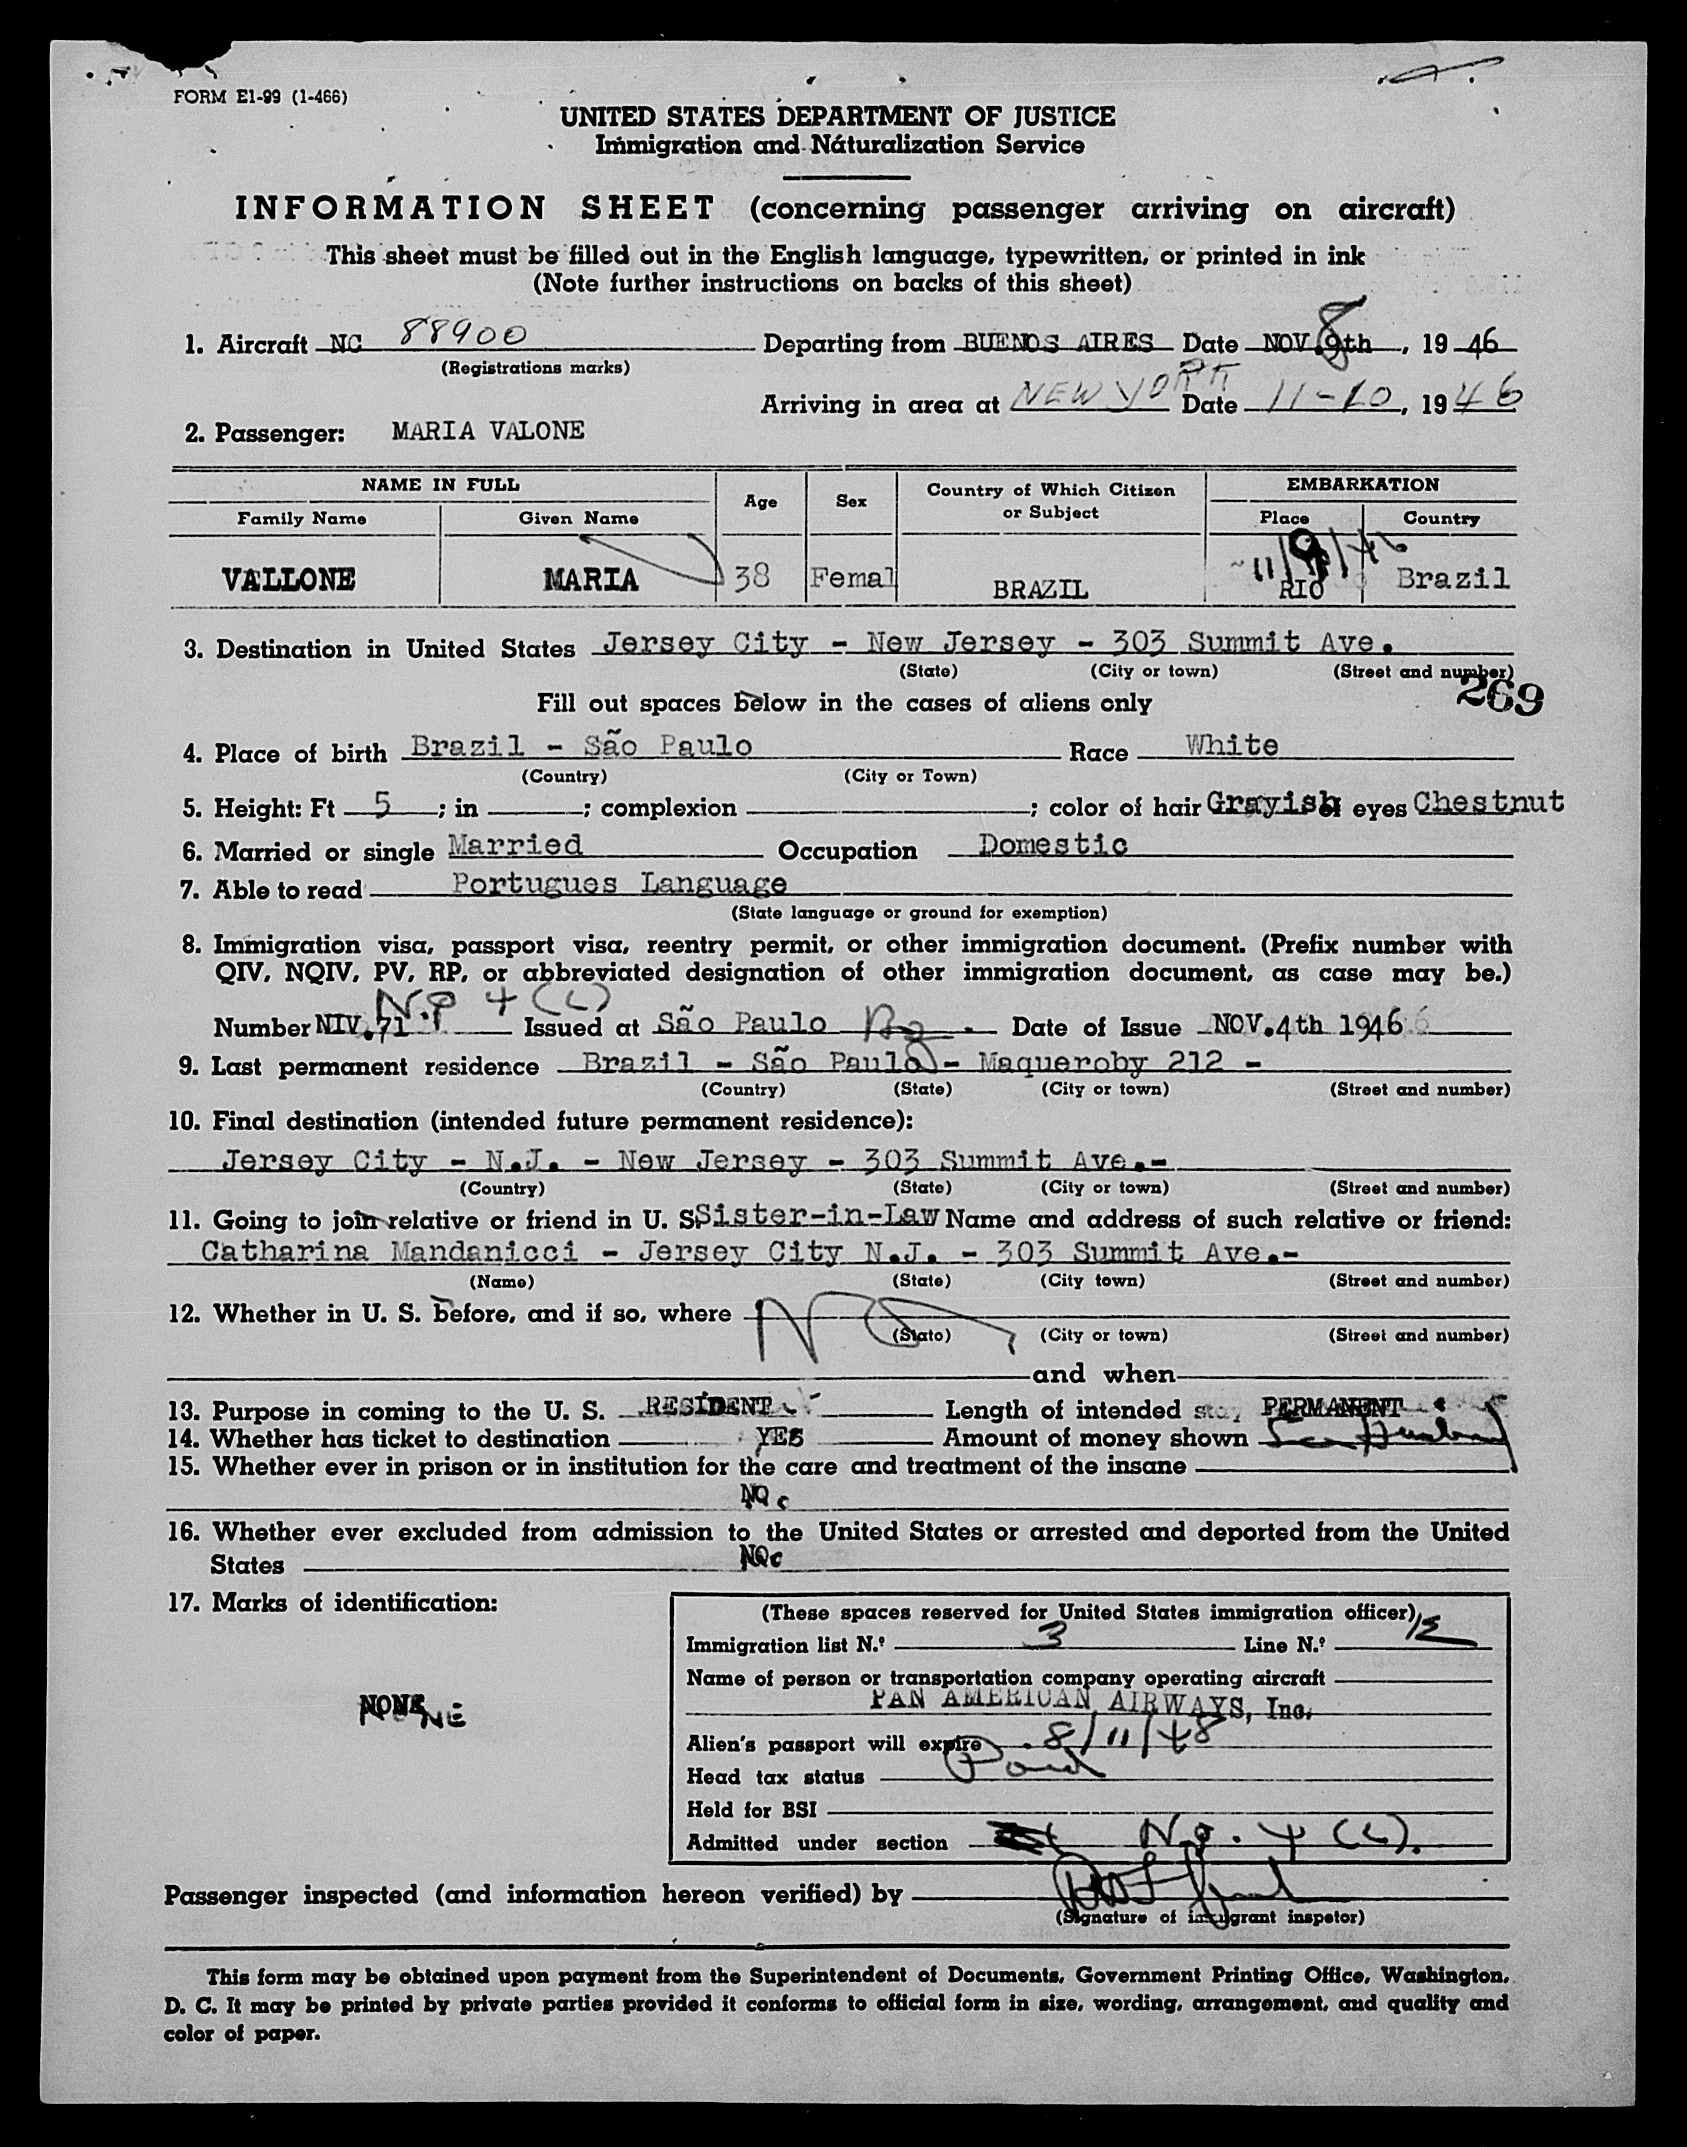 FORM E1-99 (1-466)
UNITED STATES DEPARTMENT OF JUSTICE
Immigration and Naturalization Service
INFORMATION SHEET (concerning passenger arriving on aircraft)
This sheet must be filled out in the English language, typewritten, or printed in ink
(Note further instructions on backs of this sheet)
1. Aircraft NC 88900 Departing from BUENOS AIRES Date NOV. 8 9th, 1946
(Registrations marks)
Arriving in area at NEW YORK Date 11-10, 1946
2. Passenger: MARIA VALONE
NAME IN FULL Age Sex Country of Which Citizen or Subject EMBARKATION
Family Name Given Name Place Country
11/9/46
VALLONE MARIA 38 Femal BRAZIL RIO Brazil
3. Destination in United States Jersey City - New Jersey - 303 Summit Ave.
(State) (City or town) (Street and number)
269
Fill out spaces below in the cases of aliens only
4. Place of birth Brazil - São Paulo Race White
(Country) (City or Town)
5. Height: Ft 5 ; in ; complexion ; color of hair Grayish of eyes Chestnut
6. Married or single Married Occupation Domestic
7. Able to read Portugues Language
(State language or ground for exemption)
8. Immigration visa, passport visa, reentry permit, or other immigration document. (Prefix number with
QIV, NQIV, PV, RP, or abbreviated designation of other immigration document, as case may be.)
N.P 4 (C)
Number NIV.71 Issued at São Paulo Bz. Date of Issue NOV.4th 1946
9. Last permanent residence Brazil - São Paulo - Maqueroby 212 -
(Country) (State) (City or town) (Street and number)
10. Final destination (intended future permanent residence):
Jersey City - N.J. - New Jersey - 303 Summit Ave.-
(Country) (State) (City or town) (Street and number)
11. Going to join relative or friend in U. S. Sister-in-Law Name and address of such relative or friend:
Catharina Mandanicci - Jersey City N.J. - 303 Summit Ave.-
(Name) (State) (City town) (Street and number)
12. Whether in U. S. before, and if so, where No
(State) (City or town) (Street and number)
and when
13. Purpose in coming to the U. S. RESIDENT Length of intended stay PERMANENT
14. Whether has ticket to destination YES Amount of money shown Husband
15. Whether ever in prison or in institution for the care and treatment of the insane
NO
16. Whether ever excluded from admission to the United States or arrested and deported from the United
States NO
17. Marks of identification:
NONE
NONE
(These spaces reserved for United States immigration officer)
Immigration list N.º 3 Line N.º 12
Name of person or transportation company operating aircraft
PAN AMERICAN AIRWAYS, Inc.
Alien's passport will expire 8/11/48
Head tax status Paid
Held for BSI
Admitted under section N.P. 4 (C).
Passenger inspected (and information hereon verified) by
(Signature of immigrant inspetor)
This form may be obtained upon payment from the Superintendent of Documents, Government Printing Office, Washington,
D. C. It may be printed by private parties provided it conforms to official form in size, wording, arrangement, and quality and
color of paper.